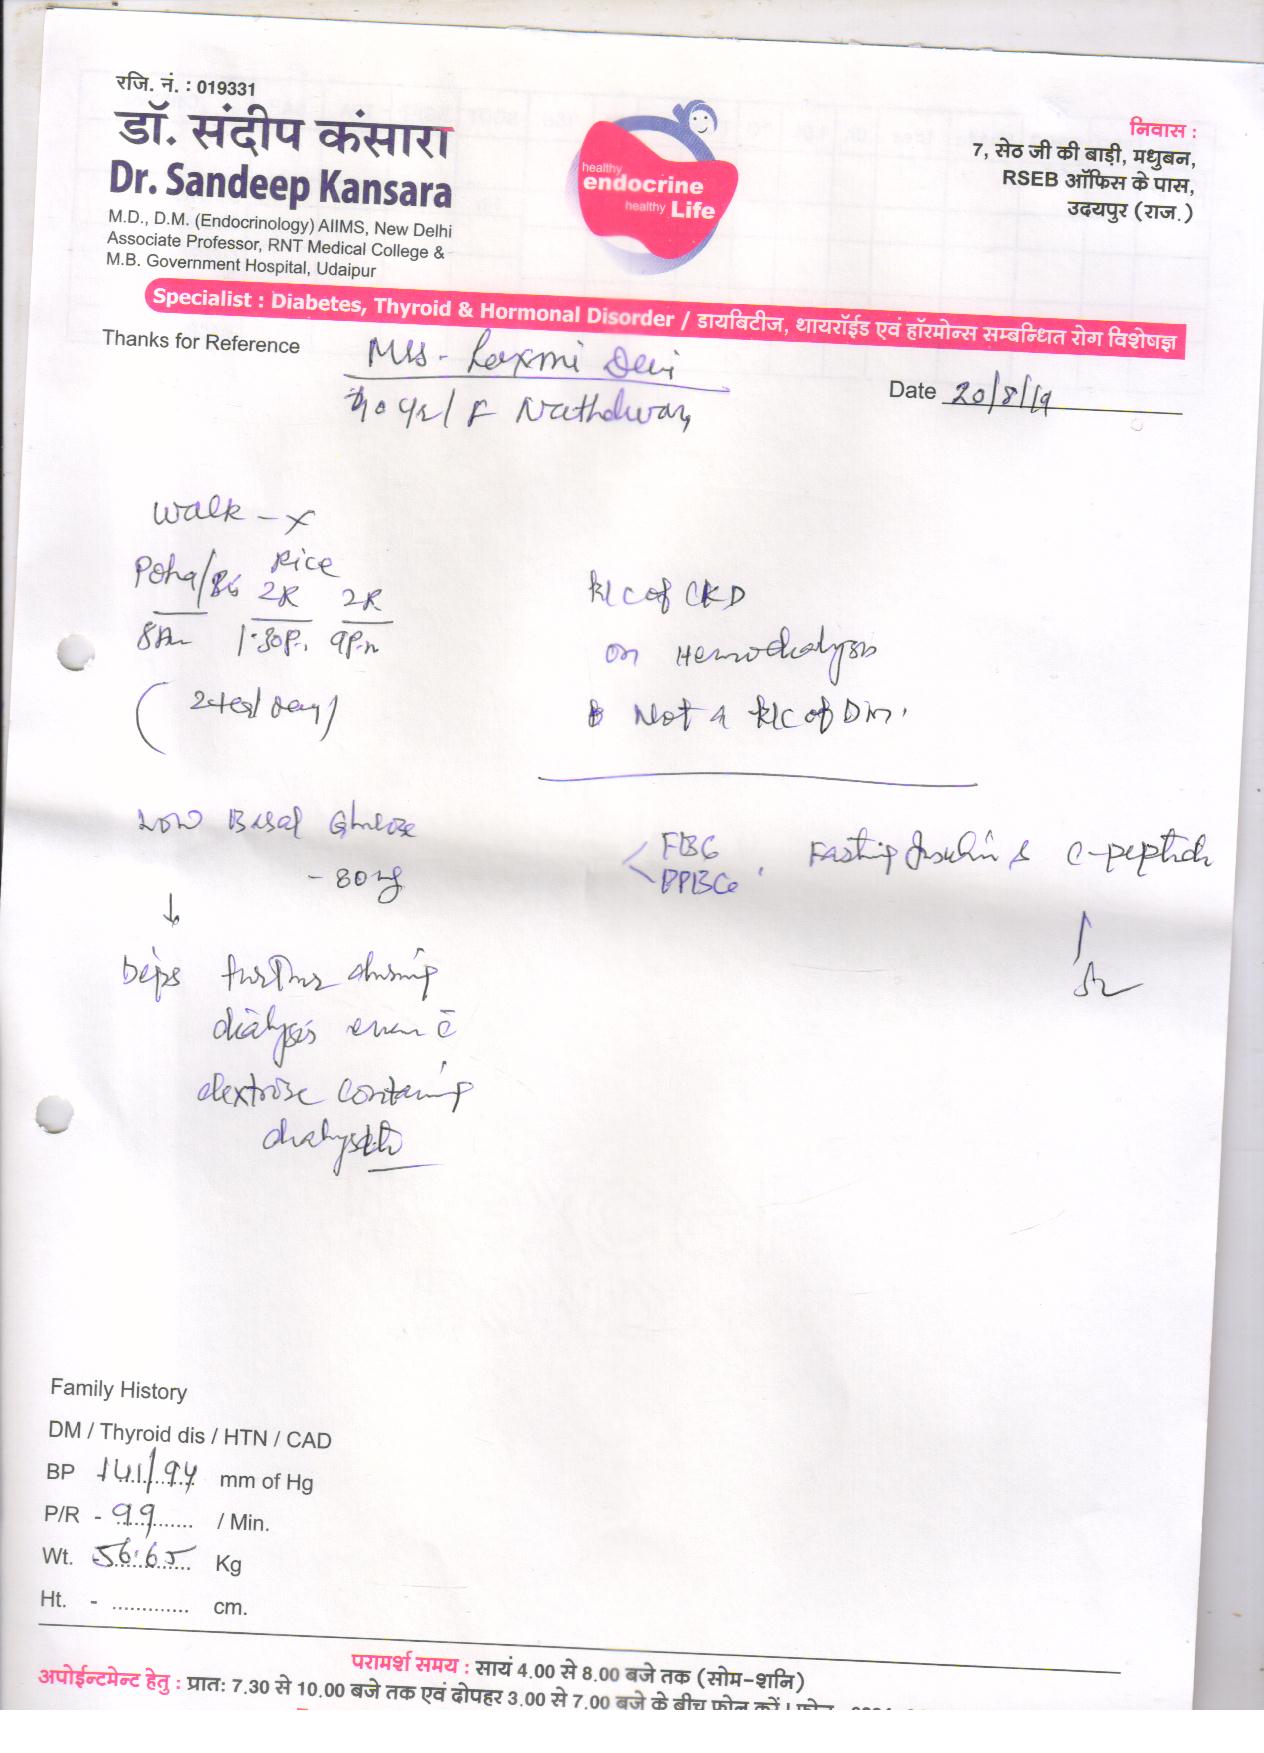 रजि. नं. : 019331
डॉ. संदीप कंसारा
Dr. Sandeep Kansara
M.D., D.M. (Endocrinology) AIIMS, New Delhi
Associate Professor, RNT Medical College &
M.B. Government Hospital, Udaipur
healthy
endocrine
healthy Life
निवास :
7, सेठ जी की बाड़ी, मधुबन,
RSEB ऑफिस के पास,
उदयपुर (राज.)
Specialist : Diabetes, Thyroid & Hormonal Disorder / डायबिटीज, थायरॉईड एवं हॉरमोन्स सम्बन्धित रोग विशेषज्ञ
Thanks for Reference
Mrs - Laxmi Devi
Date 20/8/19
yr/F Nathdwara
Walk - x
Poha/ Rice
2R 2R
8Am 1:30P. 9Pm
Day)
K/C of CKD
on Hemodialysis
Not a K/C of DM.
Low Basal Glucose
- 80 mg
↓
Dips further during
dialysis even c̄
dextrose containing
FBG
PPBG
Fasting Insulin & C-peptide
Family History
DM / Thyroid dis / HTN / CAD
BP 141/94 mm of Hg
P/R - 99 / Min.
Wt. - 56.65 Kg
Ht. - ............. cm.
परामर्श समय : सायं 4.00 से 8.00 बजे तक (सोम-शनि)
अपोईन्टमेन्ट हेतु : प्रातः 7.30 से 10.00 बजे तक एवं दोपहर 3.00 से 7.00 बजे के बीच फोन करें।